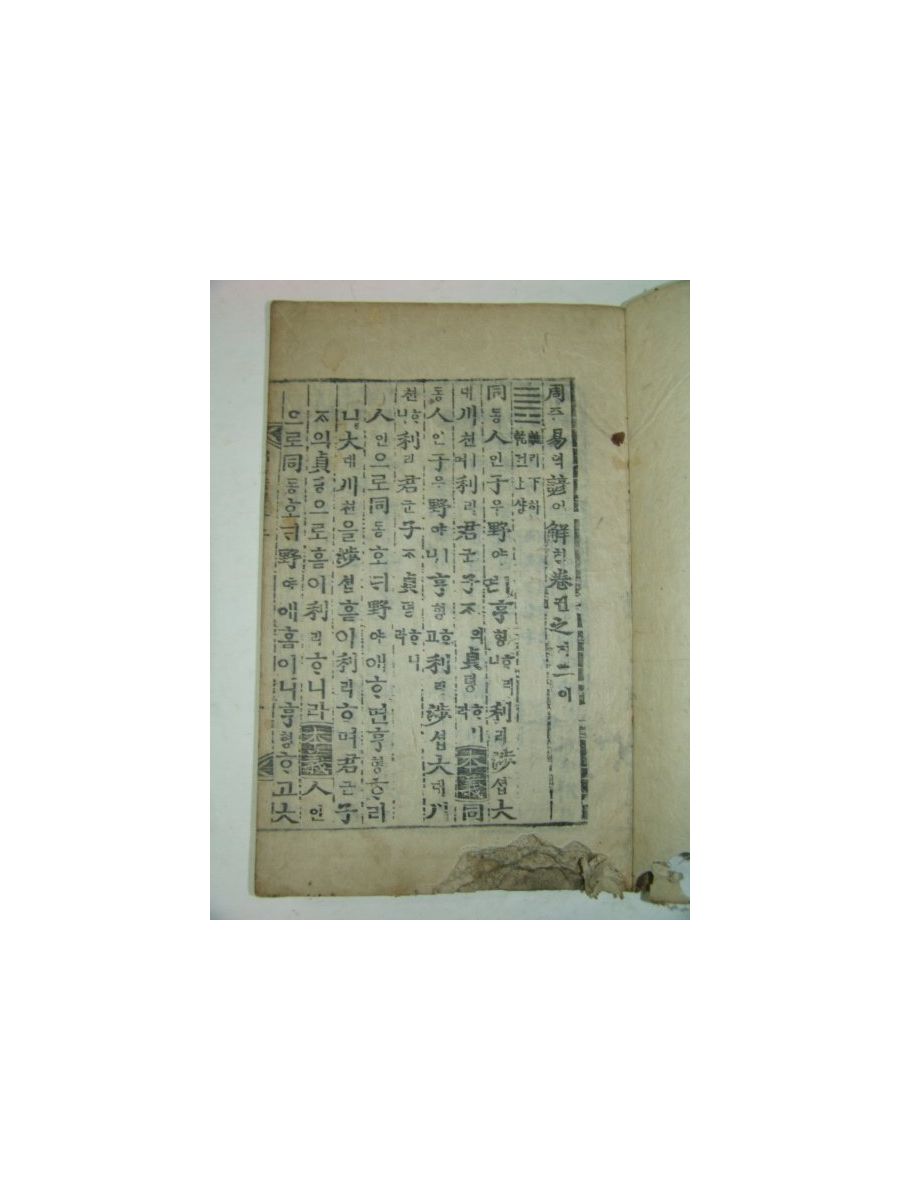 周쥬易역諺언解ᄒᆡ卷권之지二이
離리下하乾건上샹
同동人인于우野야ㅣ면亨형ᄒᆞ리니利리涉셥大
대川쳔이며利리君군子ᄌᆞ의貞뎡ᄒᆞ니라本義同
동人인于우野야ㅣ니亨형ᄒᆞ고利리涉셥大대川
쳔ᄒᆞ나利리君군子ᄌᆞ貞뎡ᄒᆞ니라
人인으로同동호ᄃᆡ野야애ᄒᆞ면亨형ᄒᆞ리
니大대川쳔을涉셥홈이利리ᄒᆞ며君군子
ᄌᆞ의貞뎡으로홈이利리ᄒᆞ니라本義人인
으로同동호ᄃᆡ野야애홈이니亨형ᄒᆞ고大